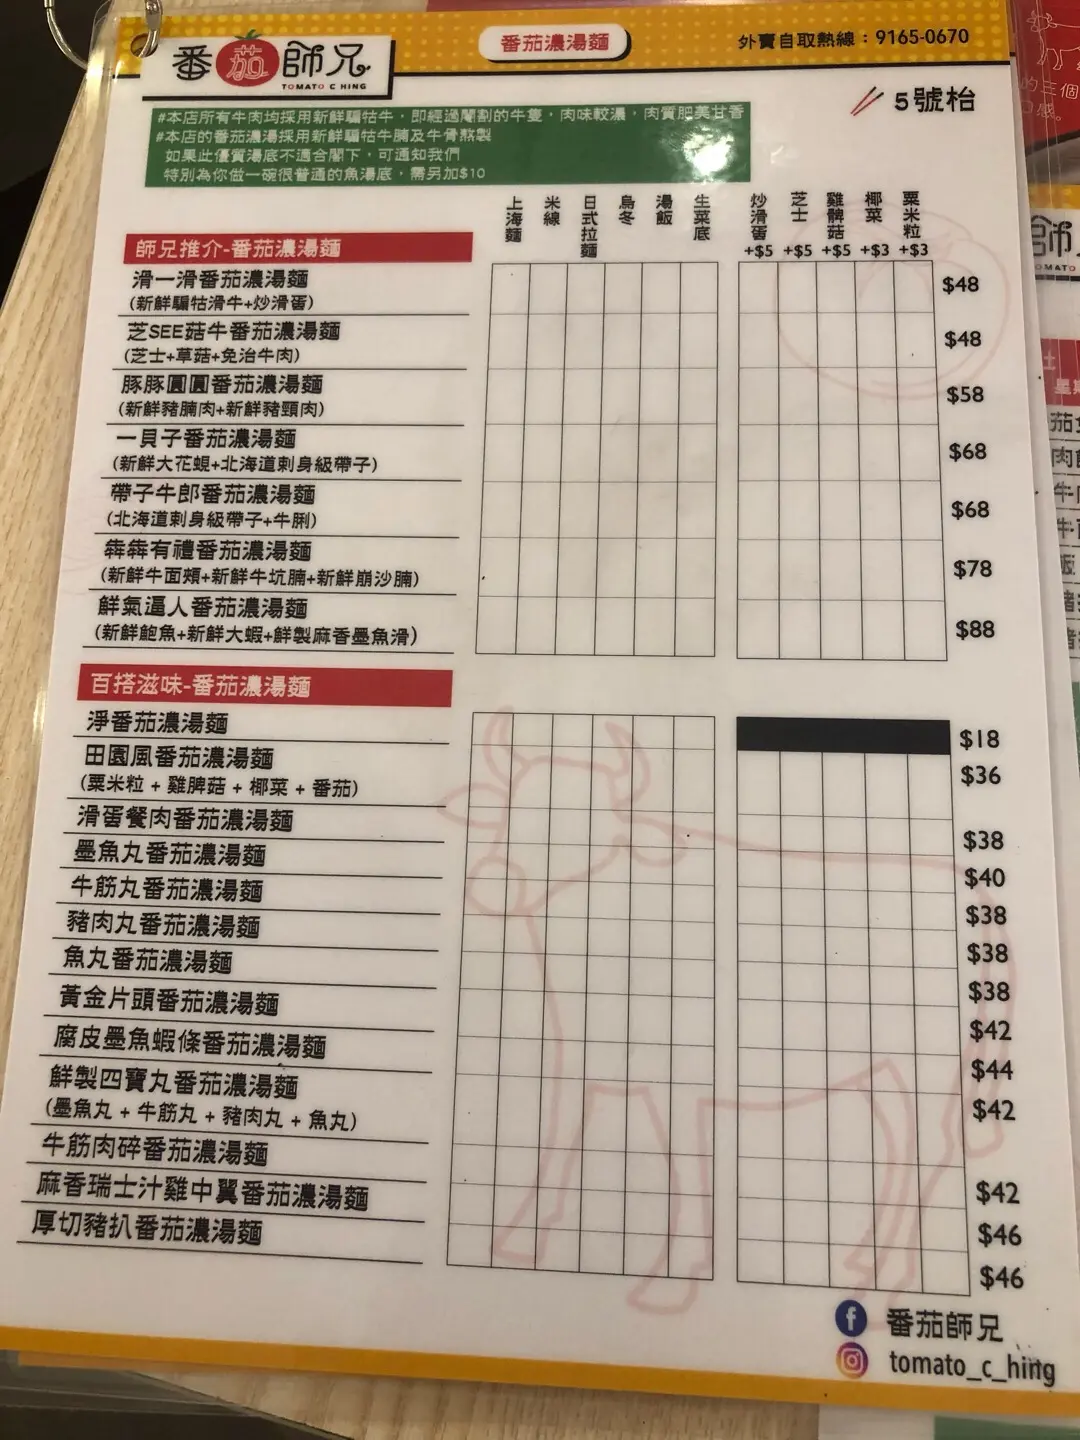 番茄師兄
TOMATO C HING
番茄濃湯麵
外賣自取熱線：9165-0670
5號枱
#本店所有牛肉均採用新鮮騸牯牛，即經過閹割的牛隻，肉味較濃，肉質肥美甘香
#本店的番茄濃湯採用新鮮騸牯牛腩及牛骨熬製
如果此優質湯底不適合閣下，可通知我們
特別為你做一碗很普通的魚湯底，需另加$10
上海麵 米線 日式拉麵 烏冬 湯飯 生菜底 炒滑蛋 芝士 雞髀菇 椰菜 粟米粒
+$5 +$5 +$5 +$3 +$3
師兄推介-番茄濃湯麵
滑一滑番茄濃湯麵 $48
(新鮮騸牯滑牛+炒滑蛋)
芝SEE菇牛番茄濃湯麵 $48
(芝士+草菇+免治牛肉)
豚豚圓圓番茄濃湯麵 $58
(新鮮豬腩肉+新鮮豬頸肉)
一貝子番茄濃湯麵 $68
(新鮮大花蜆+北海道刺身級帶子)
帶子牛郎番茄濃湯麵 $68
(北海道刺身級帶子+牛脷)
犇犇有禮番茄濃湯麵 $78
(新鮮牛面頰+新鮮牛坑腩+新鮮崩沙腩)
鮮氣逼人番茄濃湯麵 $88
(新鮮鮑魚+新鮮大蝦+鮮製麻香墨魚滑)
百搭滋味-番茄濃湯麵
淨番茄濃湯麵 $18
田園風番茄濃湯麵 $36
(粟米粒 + 雞脾菇 + 椰菜 + 番茄)
滑蛋餐肉番茄濃湯麵 $38
墨魚丸番茄濃湯麵 $40
牛筋丸番茄濃湯麵 $38
豬肉丸番茄濃湯麵 $38
魚丸番茄濃湯麵 $38
黃金片頭番茄濃湯麵 $42
腐皮墨魚蝦條番茄濃湯麵 $44
鮮製四寶丸番茄濃湯麵 $42
(墨魚丸 + 牛筋丸 + 豬肉丸 + 魚丸)
牛筋肉碎番茄濃湯麵 $42
麻香瑞士汁雞中翼番茄濃湯麵 $46
厚切豬扒番茄濃湯麵 $46
番茄師兄
tomato_c_hing